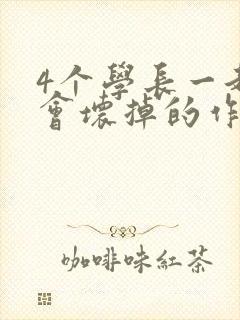 4个學長一
會壞掉的作
咖啡味紅茶